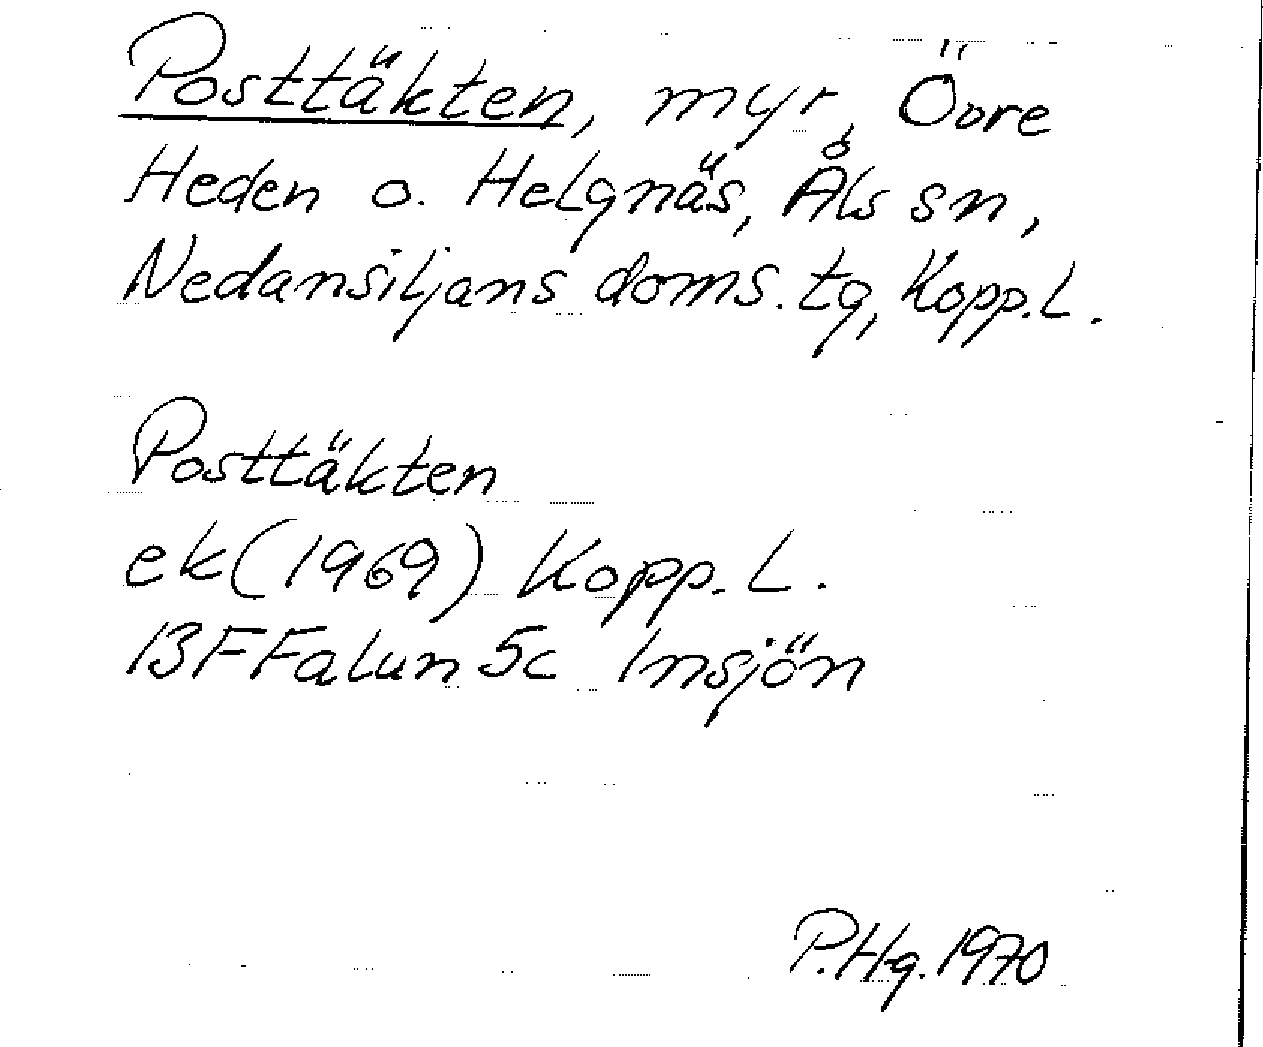 Posttäkten, myr, Övre
Heden o. Helgnäs, Åls sn,
Nedansiljans doms. tg, Kopp. L.
Posttäkten
ek (1969) Kopp. L.
13F Falun 5c Insjön
P. Hg. 1970